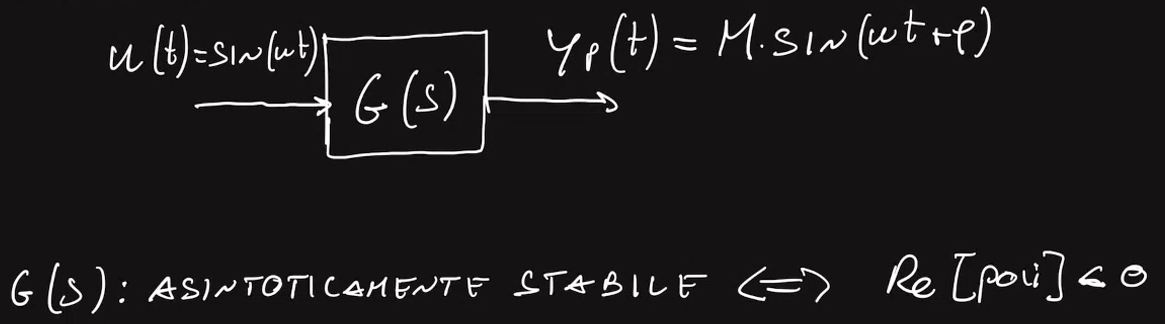 u(t)=sin(ωt)
G(s)
yp(t) = M·sin(ωt+φ)
G(s): ASINTOTICAMENTE STABILE <=> Re[poli]<0